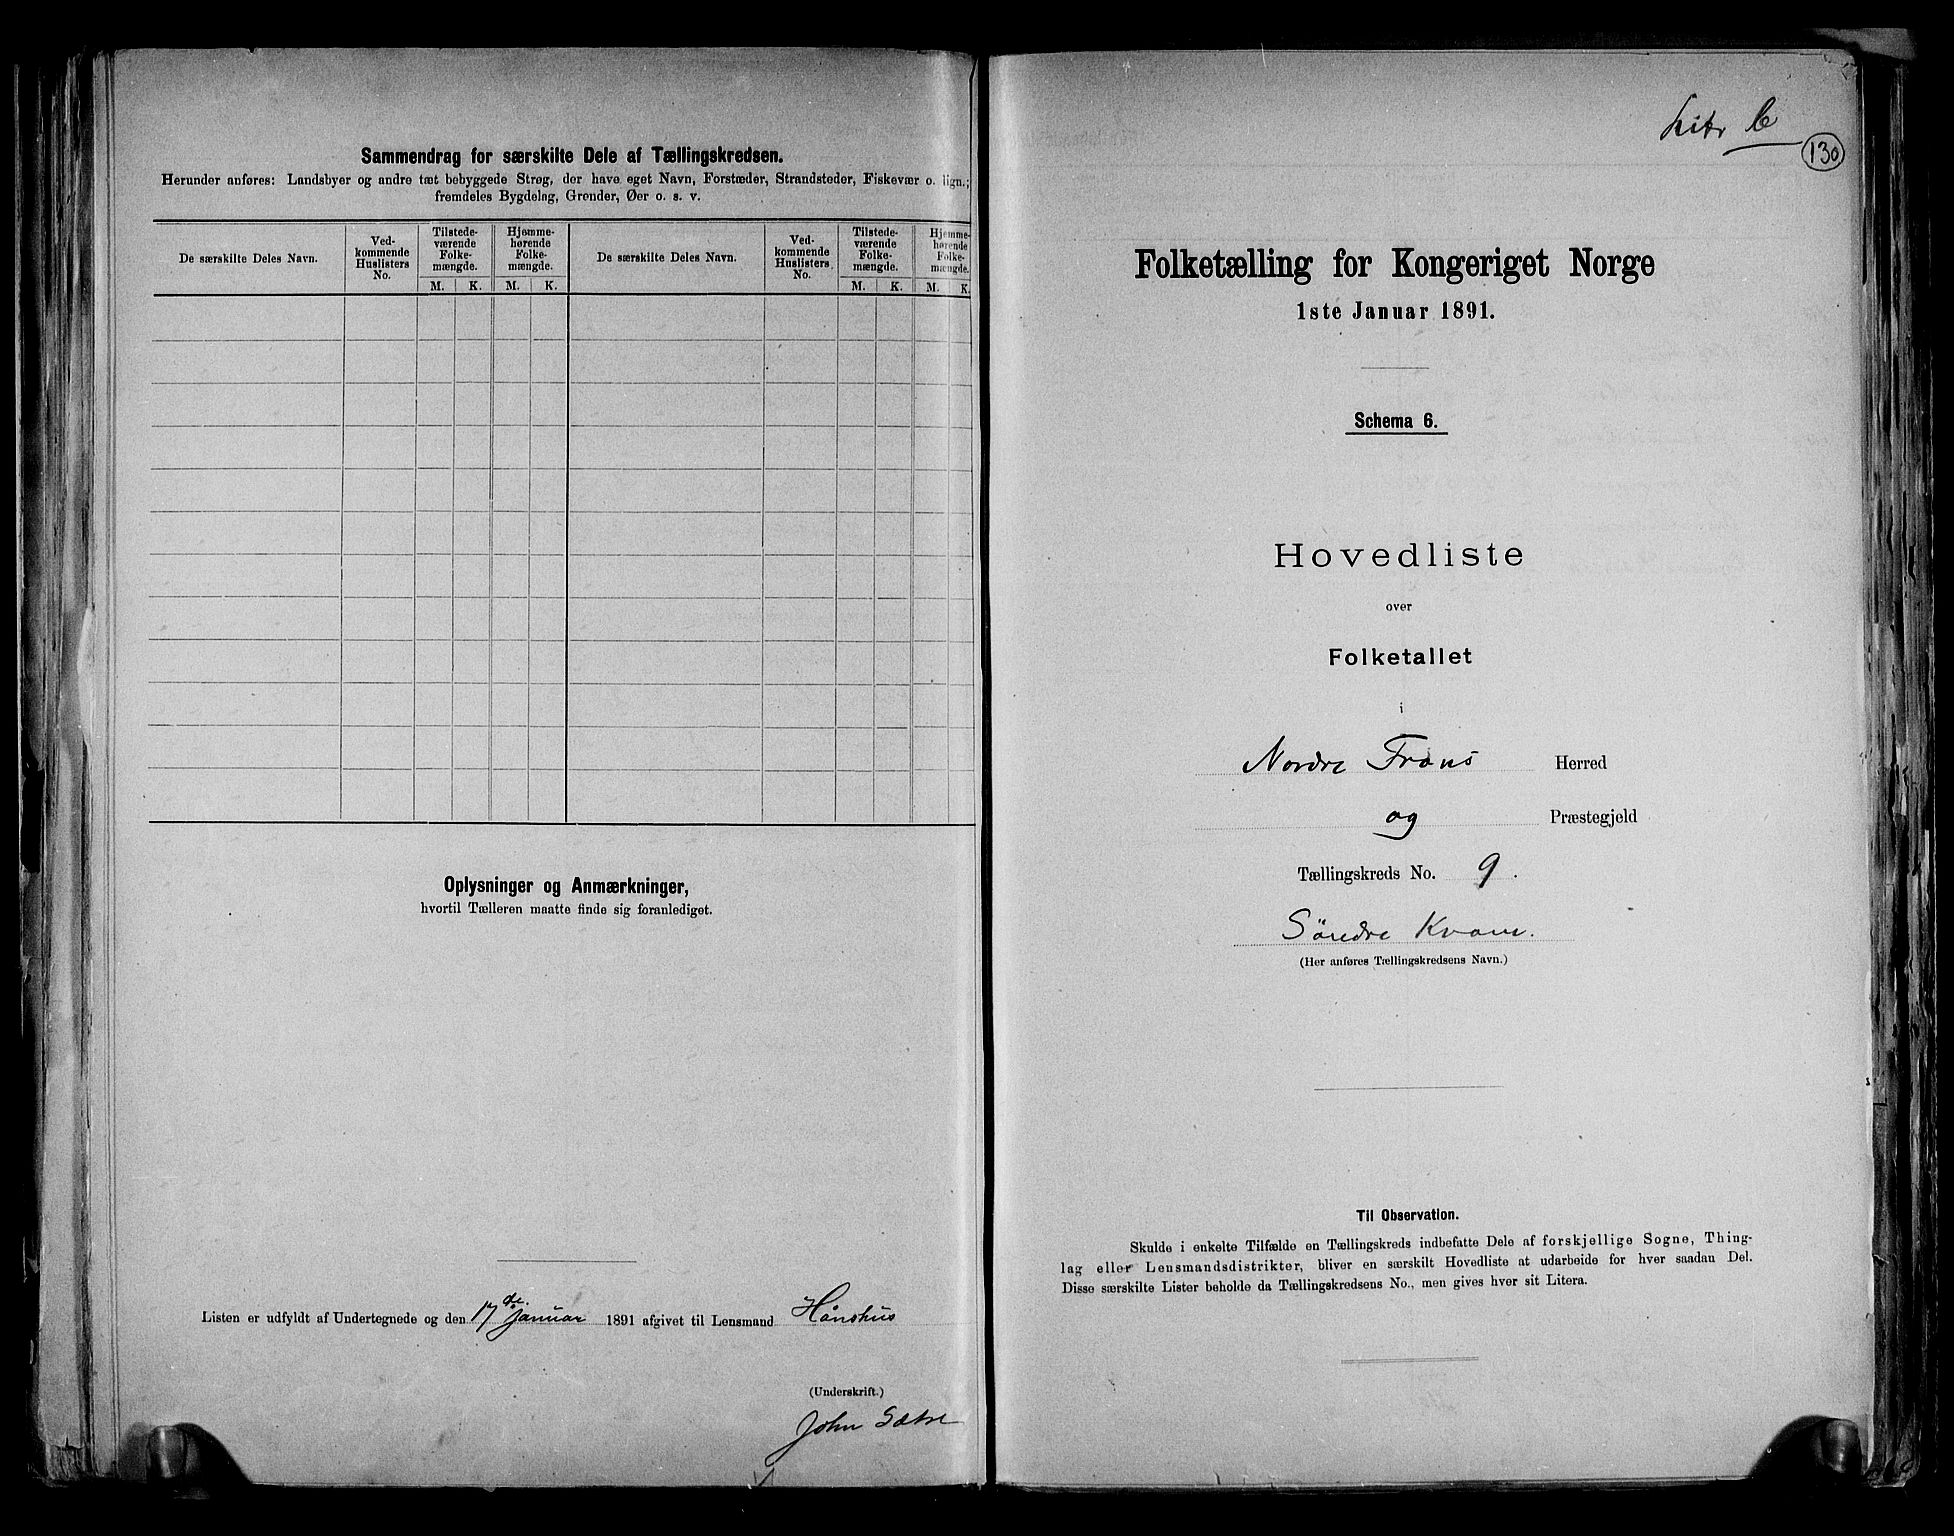 Sammendrag for særskilte Dele af Tællingskredsen.
Herunder anføres: Landsbyer og andre tæt bebyggede Strøg, der have eget Navn, Forstæder, Strandsteder, Fiskevær o. lign.;
fremdeles Bygdelag, Grender, Øer o. s. v.
De særskilte Deles Navn.
Ved-
kommende
Huslisters
No.
Tilstede-
værende
Folke-
mængde.
Hjemme-
hørende
Folke-
mængde.
M. K. M. K.
De særskilte Deles Navn.
Ved-
kommende
Huslisters
No.
Tilstede-
værende
Folke-
mængde.
Hjemme-
hørende
Folke-
mængde.
M. K. M. K.
Oplysninger og Anmærkninger,
hvortil Tælleren maatte finde sig foranlediget.
Listen er udfyldt af Undertegnede og den 17de Januar 1891 afgivet til Lensmand Hånshus
(Underskrift.)
John Sætre
Litr C
130
Folketælling for Kongeriget Norge
1ste Januar 1891.
Schema 6.
Hovedliste
over
Folketallet
i
Nordre Frøns Herred
og Præstegjeld
Tællingskreds No. 9.
Søndre Kvam.
(Her anføres Tællingskredsens Navn.)
Til Observation.
Skulde i enkelte Tilfælde en Tællingskreds indbefatte Dele af forskjellige Sogne, Thing-
lag eller Lensmandsdistrikter, bliver en særskilt Hovedliste at udarbeide for hver saadan Del.
Disse særskilte Lister beholde da Tællingskredsens No., men gives hver sit Litera.